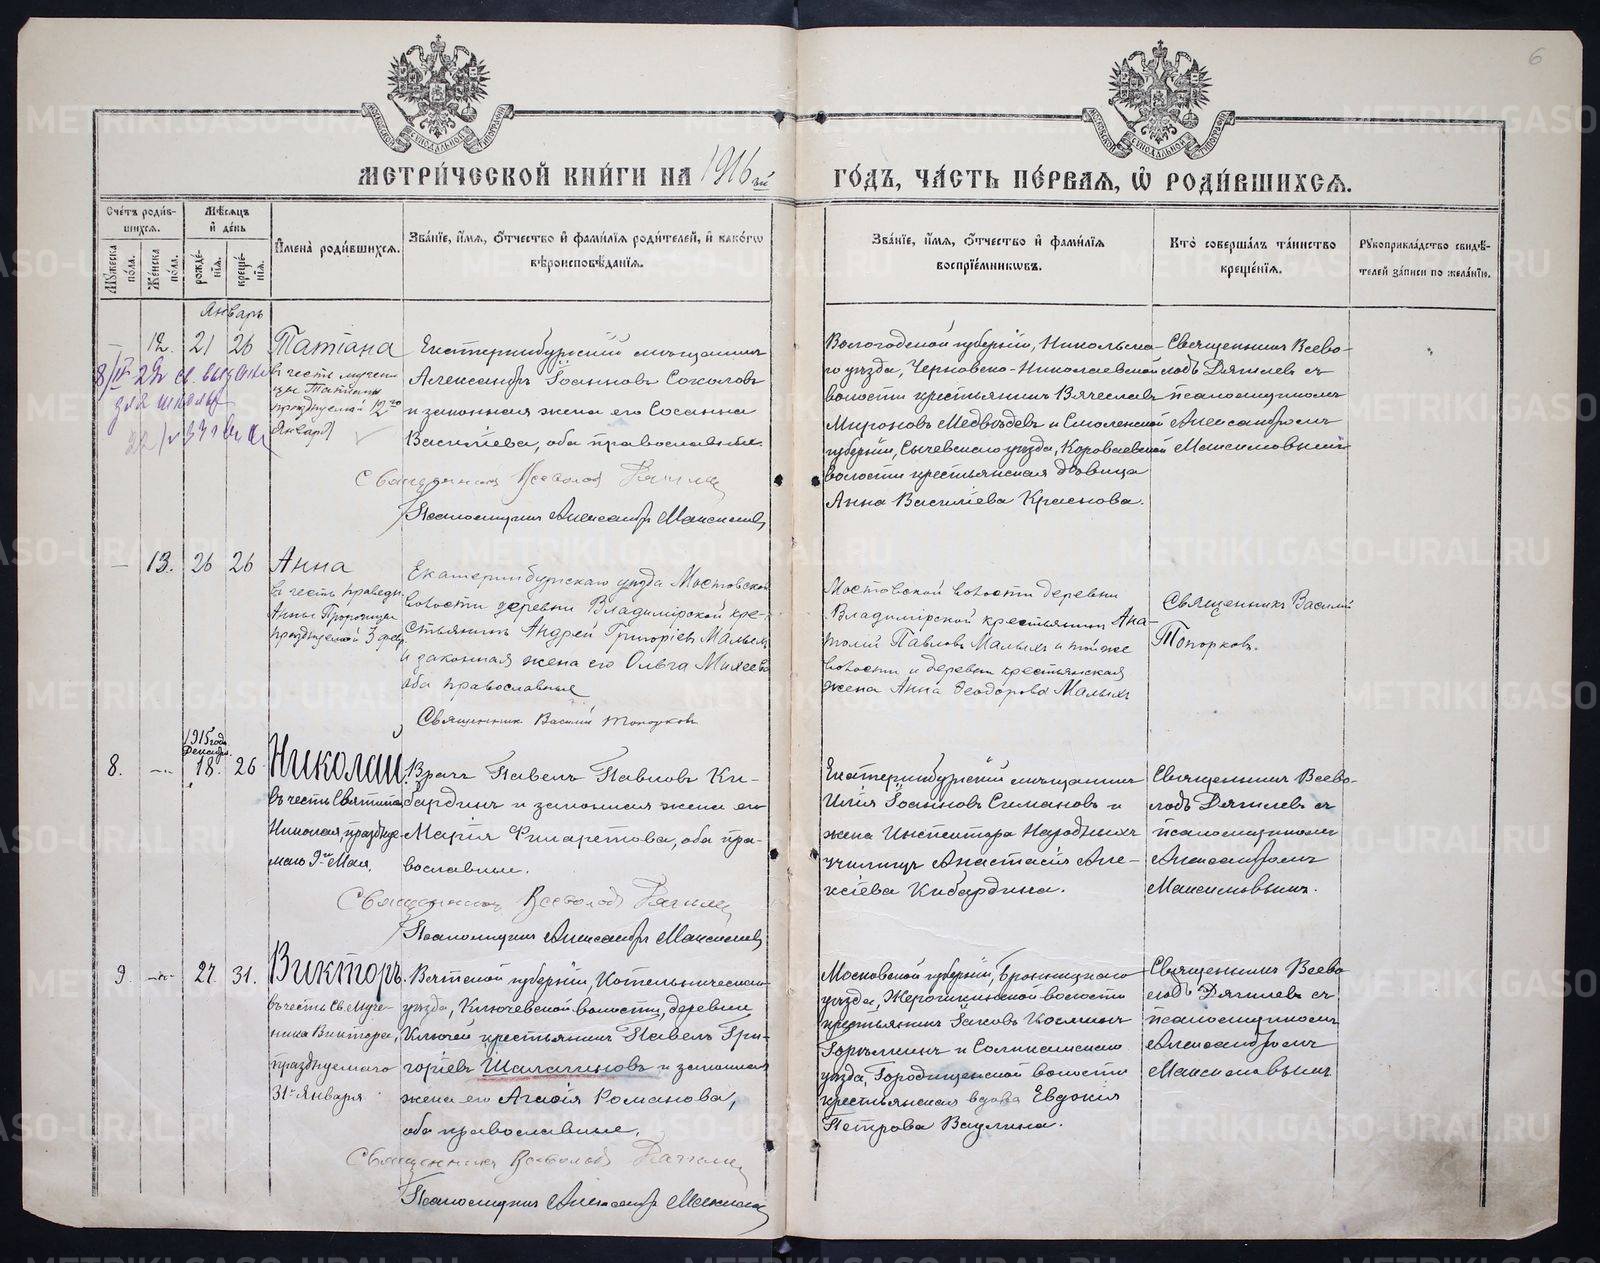 6
МЕТРИ́ЧЕСКОЙ КНИ́ГИ НА 1916 й ГО́ДЪ, ЧА́СТЬ ПЕ́РВАЯ, Ѽ РОДИ́ВШИХСЯ.
Сче́тъ роди́в-
шихся.
Мѣ́сяцъ
и де́нь
Му́жеска
по́ла.
Же́нска
по́ла.
рожде́-
нія.
креще́-
нія.
Имена̀ роди́вшихся.
Зва́ніе, и́мя, о́тчество и фами́лія роди́телей, и како́гω
вѣроисповѣ́данія.
Зва́ніе, и́мя, о́тчество и фами́лія
воспріе́мникωвъ.
Кто̀ соверша́лъ та́инство
креще́нія.
Рукоприкла́дство свидѣ́-
телей за́писи по жела́нію.
Январь
— 12. 21 26
Татіана
въ честь мучени
цы Татіаны
празднуемой 12го
Января
8/IV 29 св. выданы
для школы
Екатеринбургскій мѣщанинъ
Александръ Іоанновъ Соколовъ
и законная жена его Сосанна
Васильева, оба православные.
Священникъ Всеволодъ
Псаломщикъ Александръ
Вологодской губерніи, Никольска-
го уѣзда, Черновско-Николаевской
волости крестьянинъ Вячеславъ
Мироновъ Медвѣдевъ и Смоленской
губерніи, Сычевскаго уѣзда, Короваевской
волости крестьянская дѣвица
Анна Васильева Краснова.
Священникъ Всево-
лодъ съ
псаломщикомъ
Александромъ
— 13. 26 26
Анна
въ честь праведн.
Анны Пророчицы
празднуемой 3 февр
Екатеринбургскаго уѣзда Мостовской
волости деревни Владимірской кре-
стьянинъ Андрей Григоріевъ Малыхъ
и законная жена его Ольга Михеева
оба православные
Священникъ Василій Топорковъ
Мостовской волости деревни
Владимірской крестьянинъ Ана-
толій Павловъ Малыхъ и той же
волости и деревни крестьянская
жена Анна Ѳеодорова Малыхъ
Священникъ Василій
Топорковъ.
1915 года
Декабрь.
8. — 18. 26
Николай.
въ честь Святителя
Николая, праздну-
маго 9го Мая.
Врачъ Павелъ Павловъ Ки-
бардинъ и законная жена его
Марія Филаретова, оба пра-
вославные.
Священникъ Всеволодъ
Псаломщикъ Александръ
Екатеринбургскій мѣщанинъ
Илія Іоанновъ Симановъ и
жена Инспектора Народныхъ
училищъ Анастасія Але-
ксіева Кибардина.
Священникъ Всево-
лодъ съ
псаломщикомъ
Александромъ
9. — 27. 31.
Викторъ.
въ честь Св. муче-
ника Виктора,
празднуемаго
31го Января
Вятской губерніи, Котельническаго
уѣзда, Ключевской волости, деревни
Ключей крестьянинъ Павелъ Гри-
горіевъ Шалагиновъ и законная
жена его Агаѳія Романова,
оба православные.
Священникъ Всеволодъ
Псаломщикъ Александръ
Московской губерніи, Бронницкаго
уѣзда, волости
крестьянинъ Іаковъ
и Соликамскаго
уѣзда, Городищенской волости
крестьянская вдова Евдокія
Петрова Ваулина.
Священникъ Всево-
лодъ съ
псаломщикомъ
Александромъ